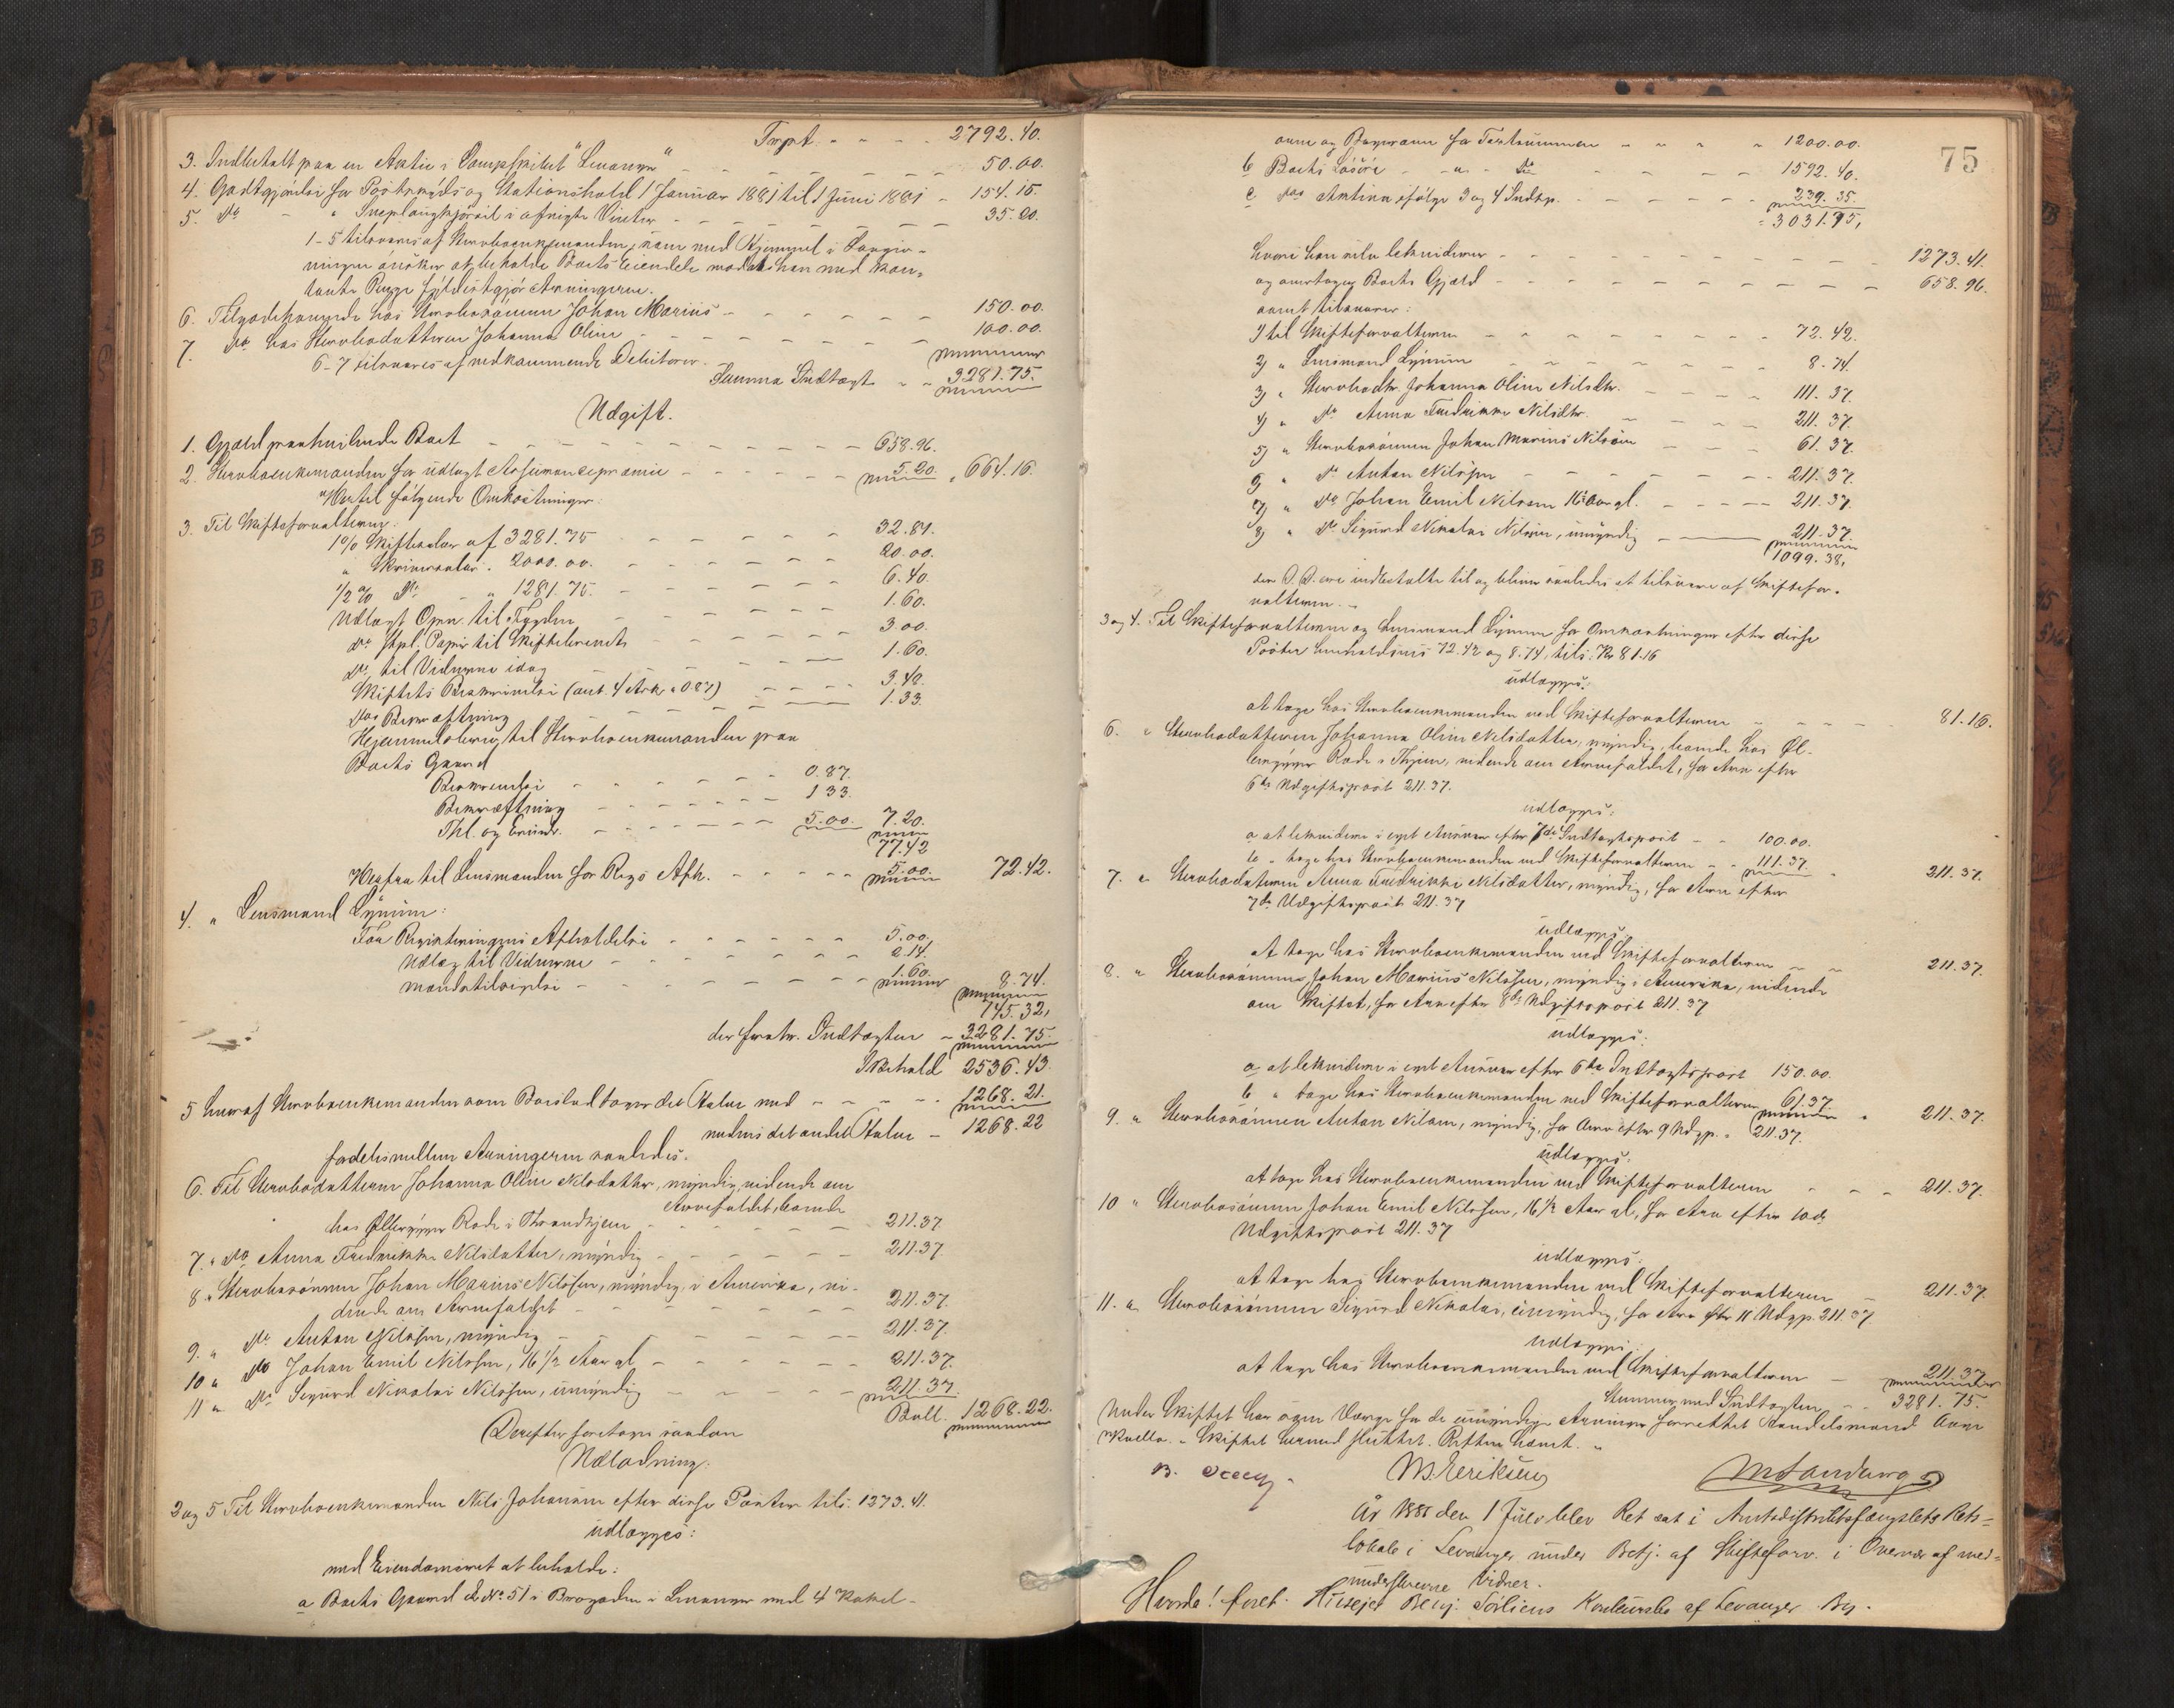 Trpt. 2792.40.
3. Indbetalt paa en Aktie i Dampskibet "Levanger" 50.00.
4. Godtgjørelse for Postbryds og Stationshold 1 Januar 1881 til 1 Juni 1881 154.15.
5. Do " Sneplougkjørsel i afvigte Vinter 35.20.
1-5 tilsvares af Stervboenkemanden, som med Hjemmel i Lovgiv-
ningen ønsker at beholde Boets Eiendele modat han med kon-
tante Penge fyldestgjør Arvingerne.
6. Tilgodehavende hos Stervbosønnen Johan Marius 150.00.
7. Do hos Stervbodatteren Johanna Oline 100.00.
6-7 tilsvares af vedkommende Debitorer.
Summa Indtægt 3281.75.
Udgift.
1. Gjæld paahvilende Boet 658.96.
2. Stervboenkemanden for udlagt Assurancepræmie 5.20. 664.16.
Hertil følgende Omkostninger:
3. Til Skifteforvalteren:
1% Skiftesalær af 3281.75 32.81.
" Skriversalær. 2000.00. 20.00.
1/2% Do " 1281.75. 6.40.
Udlagt til 1.60.
do stpl. Papir til Skiftebrevet 3.00.
do, til Vidnerne idag 1.60.
Skiftets Beskrivelse (ant. 4 Ark a 0.87) 3.48.
dos Bekræftning 1.33.
Hjemmelsbrev til Stervboenkemanden paa
Boets Gaard
Beskrivelse 0.87.
Bekræftning 1 33.
Thl. og 5.00. 7.20.
77.42
Herfra til Lensmanden for Regs Afh. 5.00. 72.42.
4. " Lensmand Lynum:
For Registreringens Afholdelse 5.00.
Udlæg til Vidnerne 2.14.
1.60. 8.74.
745.32,
der fratr. Indtægten 3281.75.
I Behold 2536.43.
5 heraf Stervboenkemanden som Boeslod tager det Halve med 1268.21.
medens det andet Halve 1268.22
fordeles mellem Arvingerne saaledes.
6. Til Stervbodatteren Johanna Oline Nilsdatter, myndig, vidende om
Arvefaldet, boende
hos Ølbrygger Rode i Throndhjem 211.37.
7. " do Anna Fredrikke Nilsdatter, myndig 211.37.
8 " Stervbosønnen Johan Marius Nilssen, myndig, i Amerika, vi-
dende om Arvefaldet 211.37.
9. " do Anton Nilssen, myndig 211.37.
10 " do Johan Emil Nilssen, 16 1/2 Aar gl. 211.37.
11 " do Sigurd Nikolai Nilssen, umyndig 211.37.
Ball. 1268.22.
Derefter foretages saadan
Udlodning:
2 og 5 Til Stervboenkemanden Nils Johansen efter disse Poster tils. 1273.41.
udlægges:
med Eiendomsret at beholde:
a Boets Gaard No 51 i Brogaden i Levanger med 4 Kakel-
75
ovne og for Taxtsummen 1200.00.
b Boets Løsøre do 1592.40.
c dos Aktiva ifølge 3 og 4 Indtp. 239.35.
3031.75,
hvori han selv lekviderer 1273.41.
og overtager Boets Gjæld 658.96.
samt tilsvarer:
1) til Skifteforvalteren 72.42.
2) " Lensmand Lynum 8.74.
3) " Stervbodtr. Johanna Oline Nilsdtr. 111.37.
4) " do Anna Fredrikke Nilsdtr. 211.37.
5) " Stervbosønnen Johan Marius Nilssen 61.37.
6) " do Anton Nilssen 211.37.
7) " do Johan Emil Nilssen 16 1/2 Aar gl. 211.37.
8) " do Sigurd Nikolai Nilssen, umyndig 211.37.
1099.38,
der D. D. ere indbetalte til og blive saaledes at tilsvare af Skiftefor-
valteren.
3 og 4. Til Skifteforvalteren og Lensmand Lynum for Omkostninger efter disse
Poster henholdsvis 72.42 og 8.74, tils. Kr 81.16
udlægges:
at tage hos Stervboenkemanden ved Skifteforvalteren 81.16.
6. " Stervbodatteren Johanna Oline Nilsdatter, myndig, boende hos Øl-
brygger Rode i Thjem, vidende om Arvefaldet, for Arv efter
6te Udgiftspost 211.37.
udlægges:
a at lekvidere i egst Ansvar efter 7de Indtægtspost 100.00.
b " tage hos Stervboenkemanden ved Skifteforvalteren 111.37. 211.37.
7. " Stervbodatteren Anna Fredrikke Nilsdatter, myndig, for Arv efter
7de Udgiftspost 211.37
udlægges:
At tage hos Stervboenkemanden ved Skifteforvalteren 211.37.
8. " Stervbosønnen Johan Marius Nilssen, myndig i Amerika, vidende
om Skiftet, for Arv efter 8de Udgiftspost 211.37
udlægges:
a at lekvidere i egst Ansvar efter 6te Indtægtspost 150.00.
b " tage hos Stervboenkemanden ved Skifteforvalteren 61.37 211.37.
9. " Stervbosønnen Anton Nilssen, myndig, for Arv efter 9 Udgp. 211.37.
udlægges:
at tage hos Stervboenkemanden ved Skifteforvalteren 211.37.
10 " Stervbosønnen Johan Emil Nilssen, 16 1/2 Aar gl, for Arv efter 10de
Udgiftspost 211.37
udlægges:
at tage hos Stervboenkemanden ved Skifteforvalteren 211.37.
11. " Stervbosønnen Sigurd Nikolai, umyndig, for Arv efter 11 Udgp. 211.37
udlægges:
at tage hos Stervboenkemanden ved Skifteforvalteren 211.37.
Stemmer med Indtægten 3281.75.
Under Skiftet har som Værge for de umyndige Arvinger forrettet Handelsmand Arne
Skiftet hermed sluttet. Retten hævet.
M. Eriksen
År 1881 den 1 Juli blev Ret sat i Amtsdistriktsfængslets Rets-
lokale i Levanger under Betj. af Skifteforv. i Overvær af med-
underskrevne Vidner.
Hvorda! foret. Huseier Benj. Sørliens Konkursbo af Levanger By.